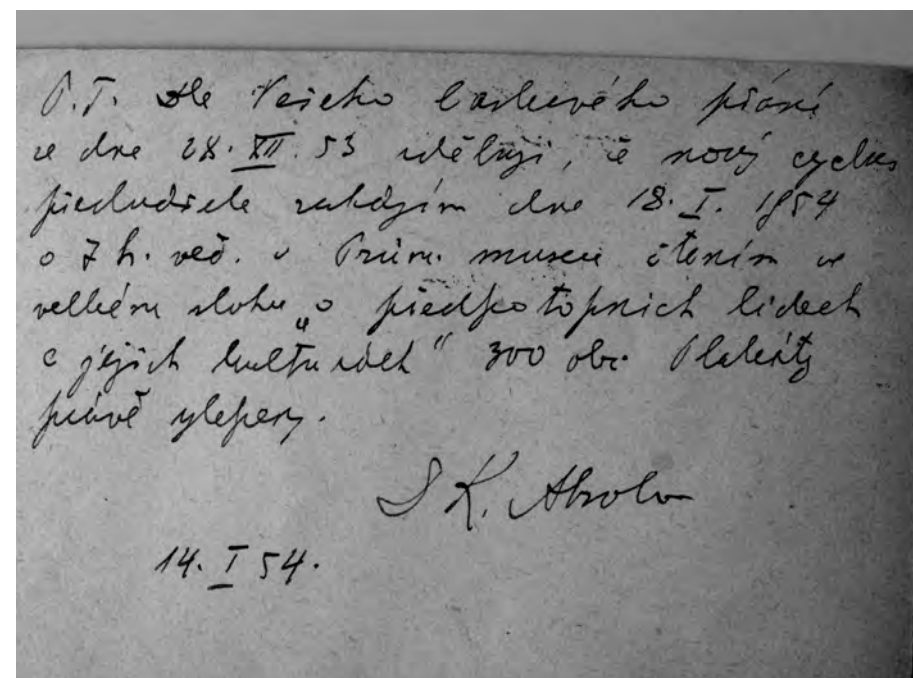 P.T. Dle Vašeho laskavého přání
ze dne 28. XII. 53 sděluji, že nový cyklus
přednášek zahájím dne 18. I. 1954
o 7 h. več. v Prům. museu čtením ve
velkém slohu „o předpotopních lidech
a jejich kulturách" 300 obr. Plakáty
právě vylepeny.
K. Absolon
14. I 54.